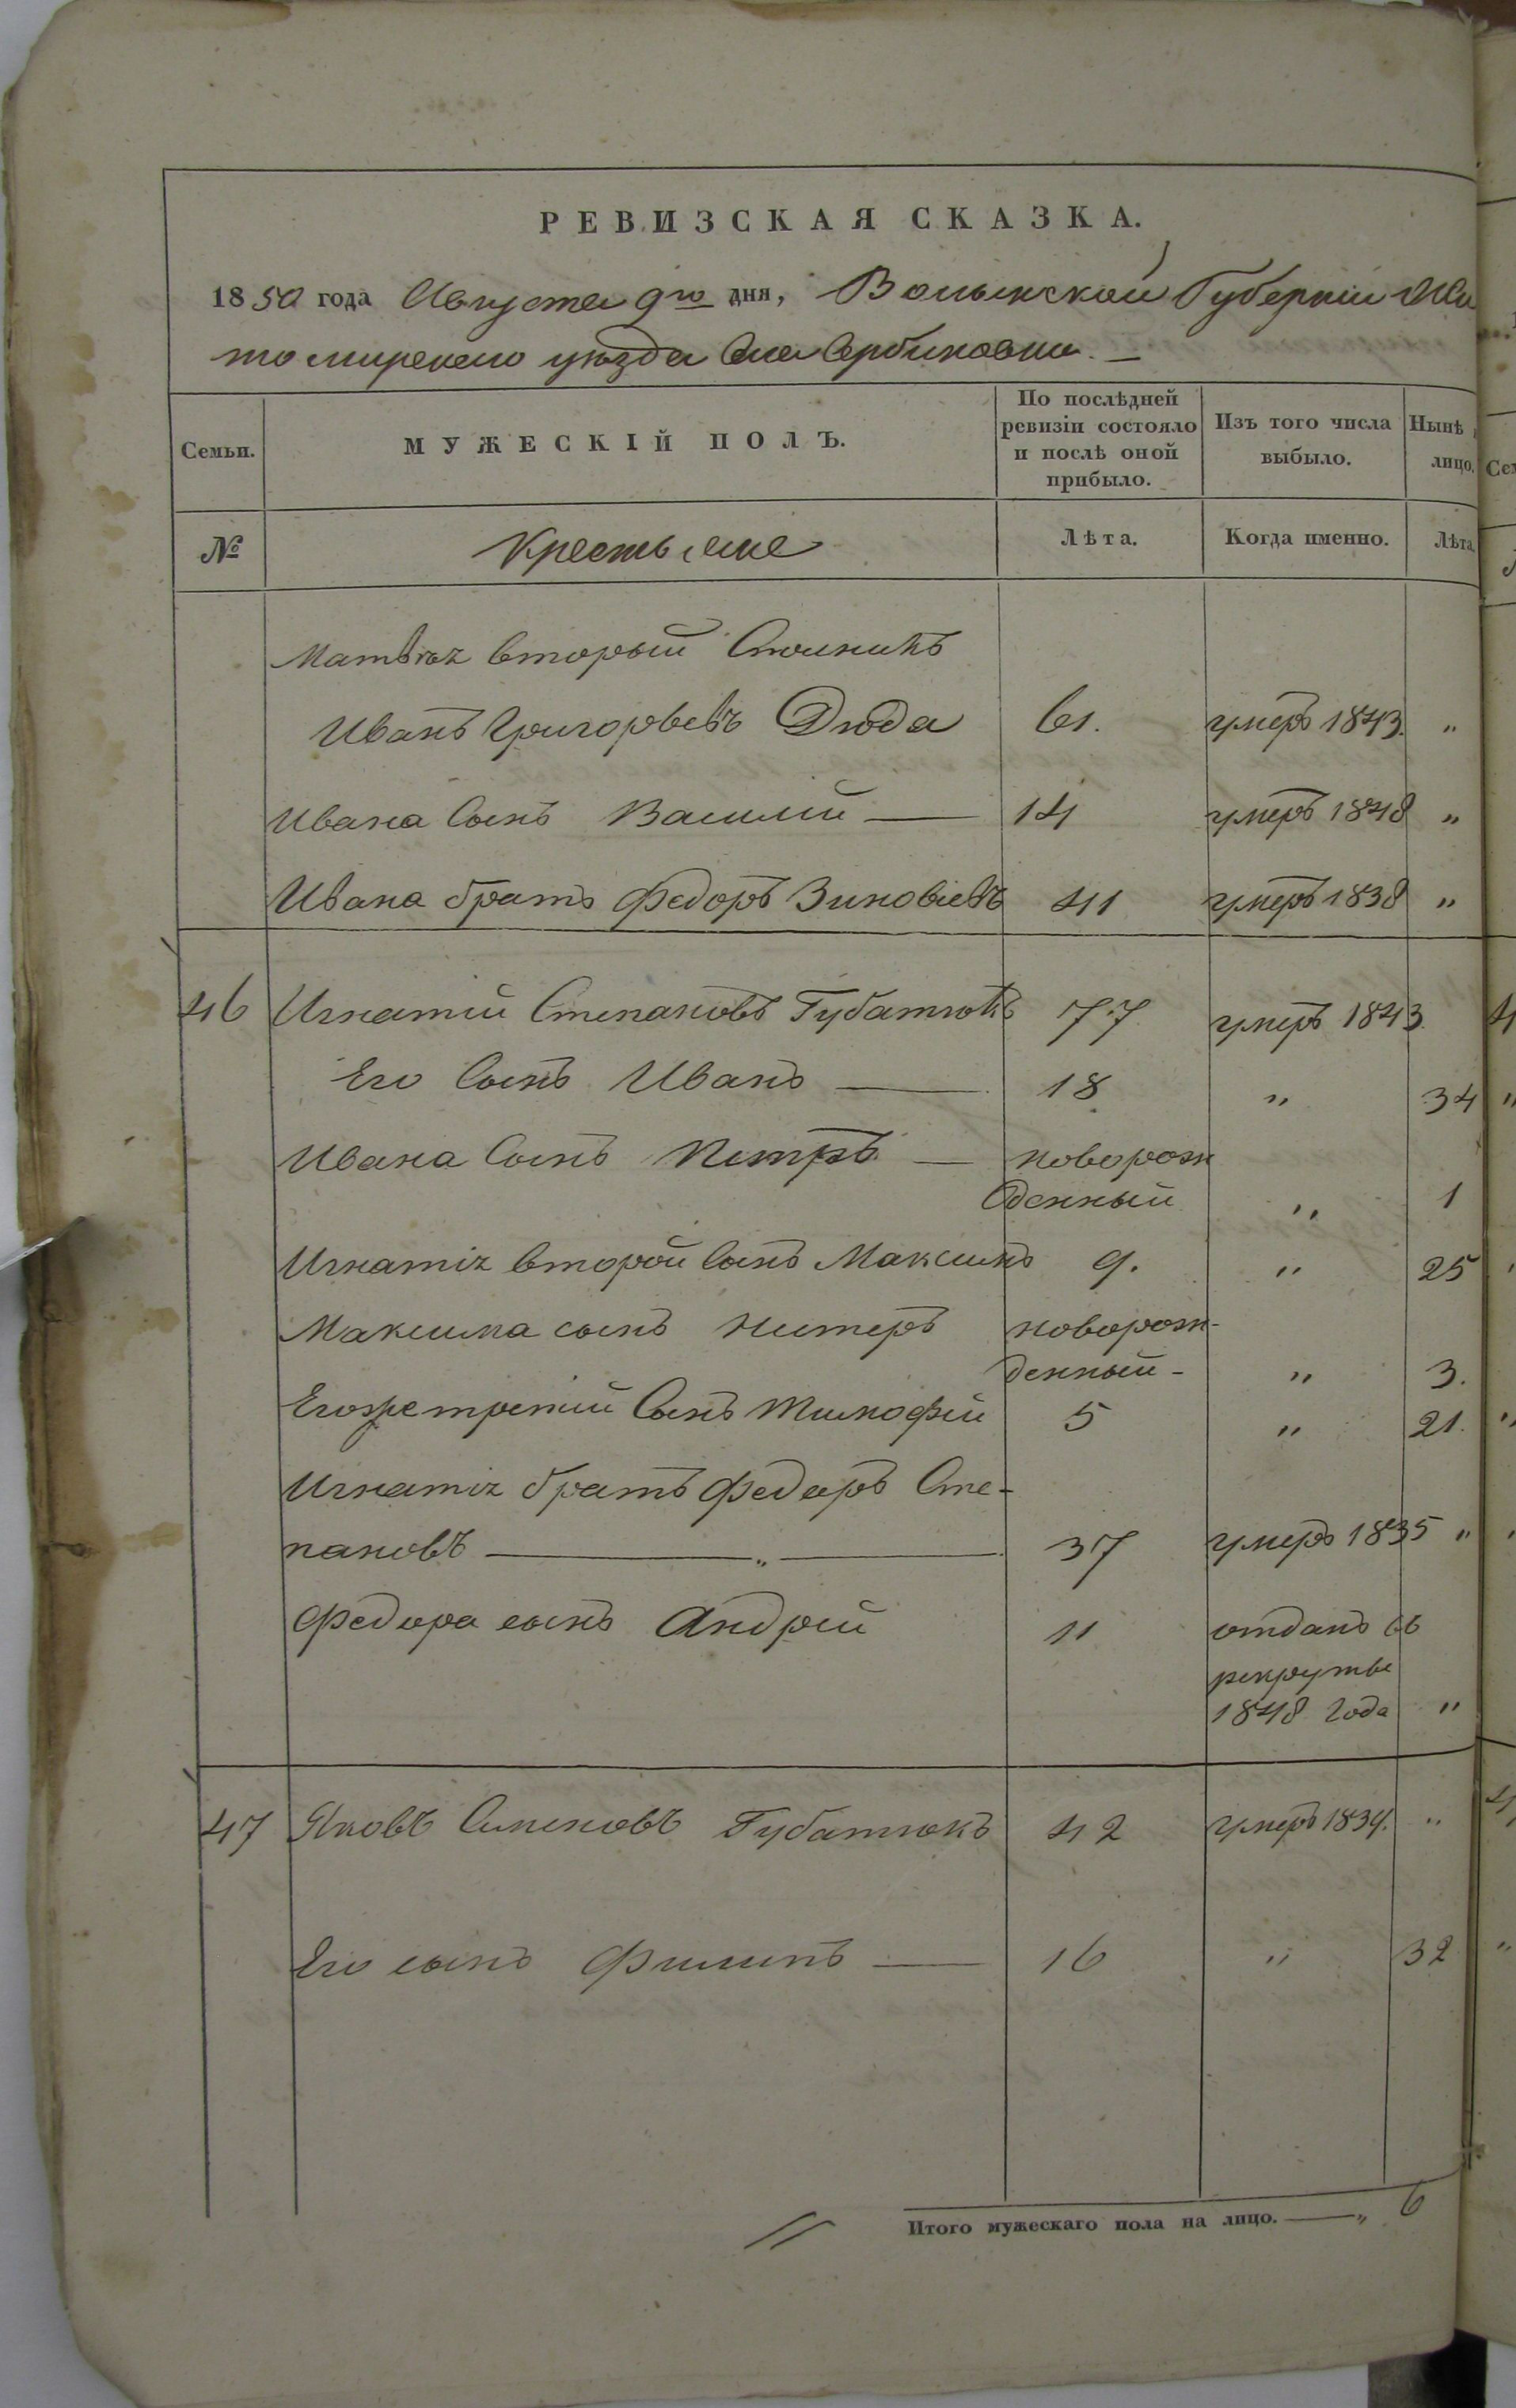 РЕВИЗСКАЯ СКАЗКА.
1850 года Августа 9го дня, Волынской Губерніи Жи
томирскаго уѣзда Села Вербиновки. —
Семьи.
МУЖЕСКІЙ ПОЛЪ.
По послѣдней
ревизіи состояло
и послѣ оной
прибыло.
Изъ того числа
выбыло.
Нынѣ
лицо.
№
Крестьяне
Лѣта.
Когда именно.
Лѣта
Матвѣя вторый
Иванъ Григорьевъ Дюда 61. умеръ 1843. „
Ивана Сынъ Василій — 14 умеръ 1848 „
Ивана братъ Федоръ Зиновіевъ 41 умеръ 1838 „
46 Игнатій Степановъ Губатюкъ 77 умеръ 1843.
Его Сынъ Иванъ — 18 „ 34
Ивана Сынъ Петръ — новорож
денный „ 1
Игнатія второй Сынъ Максимъ 9. „ 25
Максима сынъ новорож-
денный - „ 3.
Егоже третій Сынъ Тимофій 5 „ 21.
Игнатія братъ Федоръ Сте-
пановъ — „ — 37 умеръ 1835 „
Федора сынъ Андрій 11 отданъ въ
рекруты
1848 Года „
47 Яковъ Семеновъ Губатюкъ 42 умеръ 1834. „
Его сынъ Филипъ — 16 „ 32
Итого мужескаго пола на лицо. — „ 6